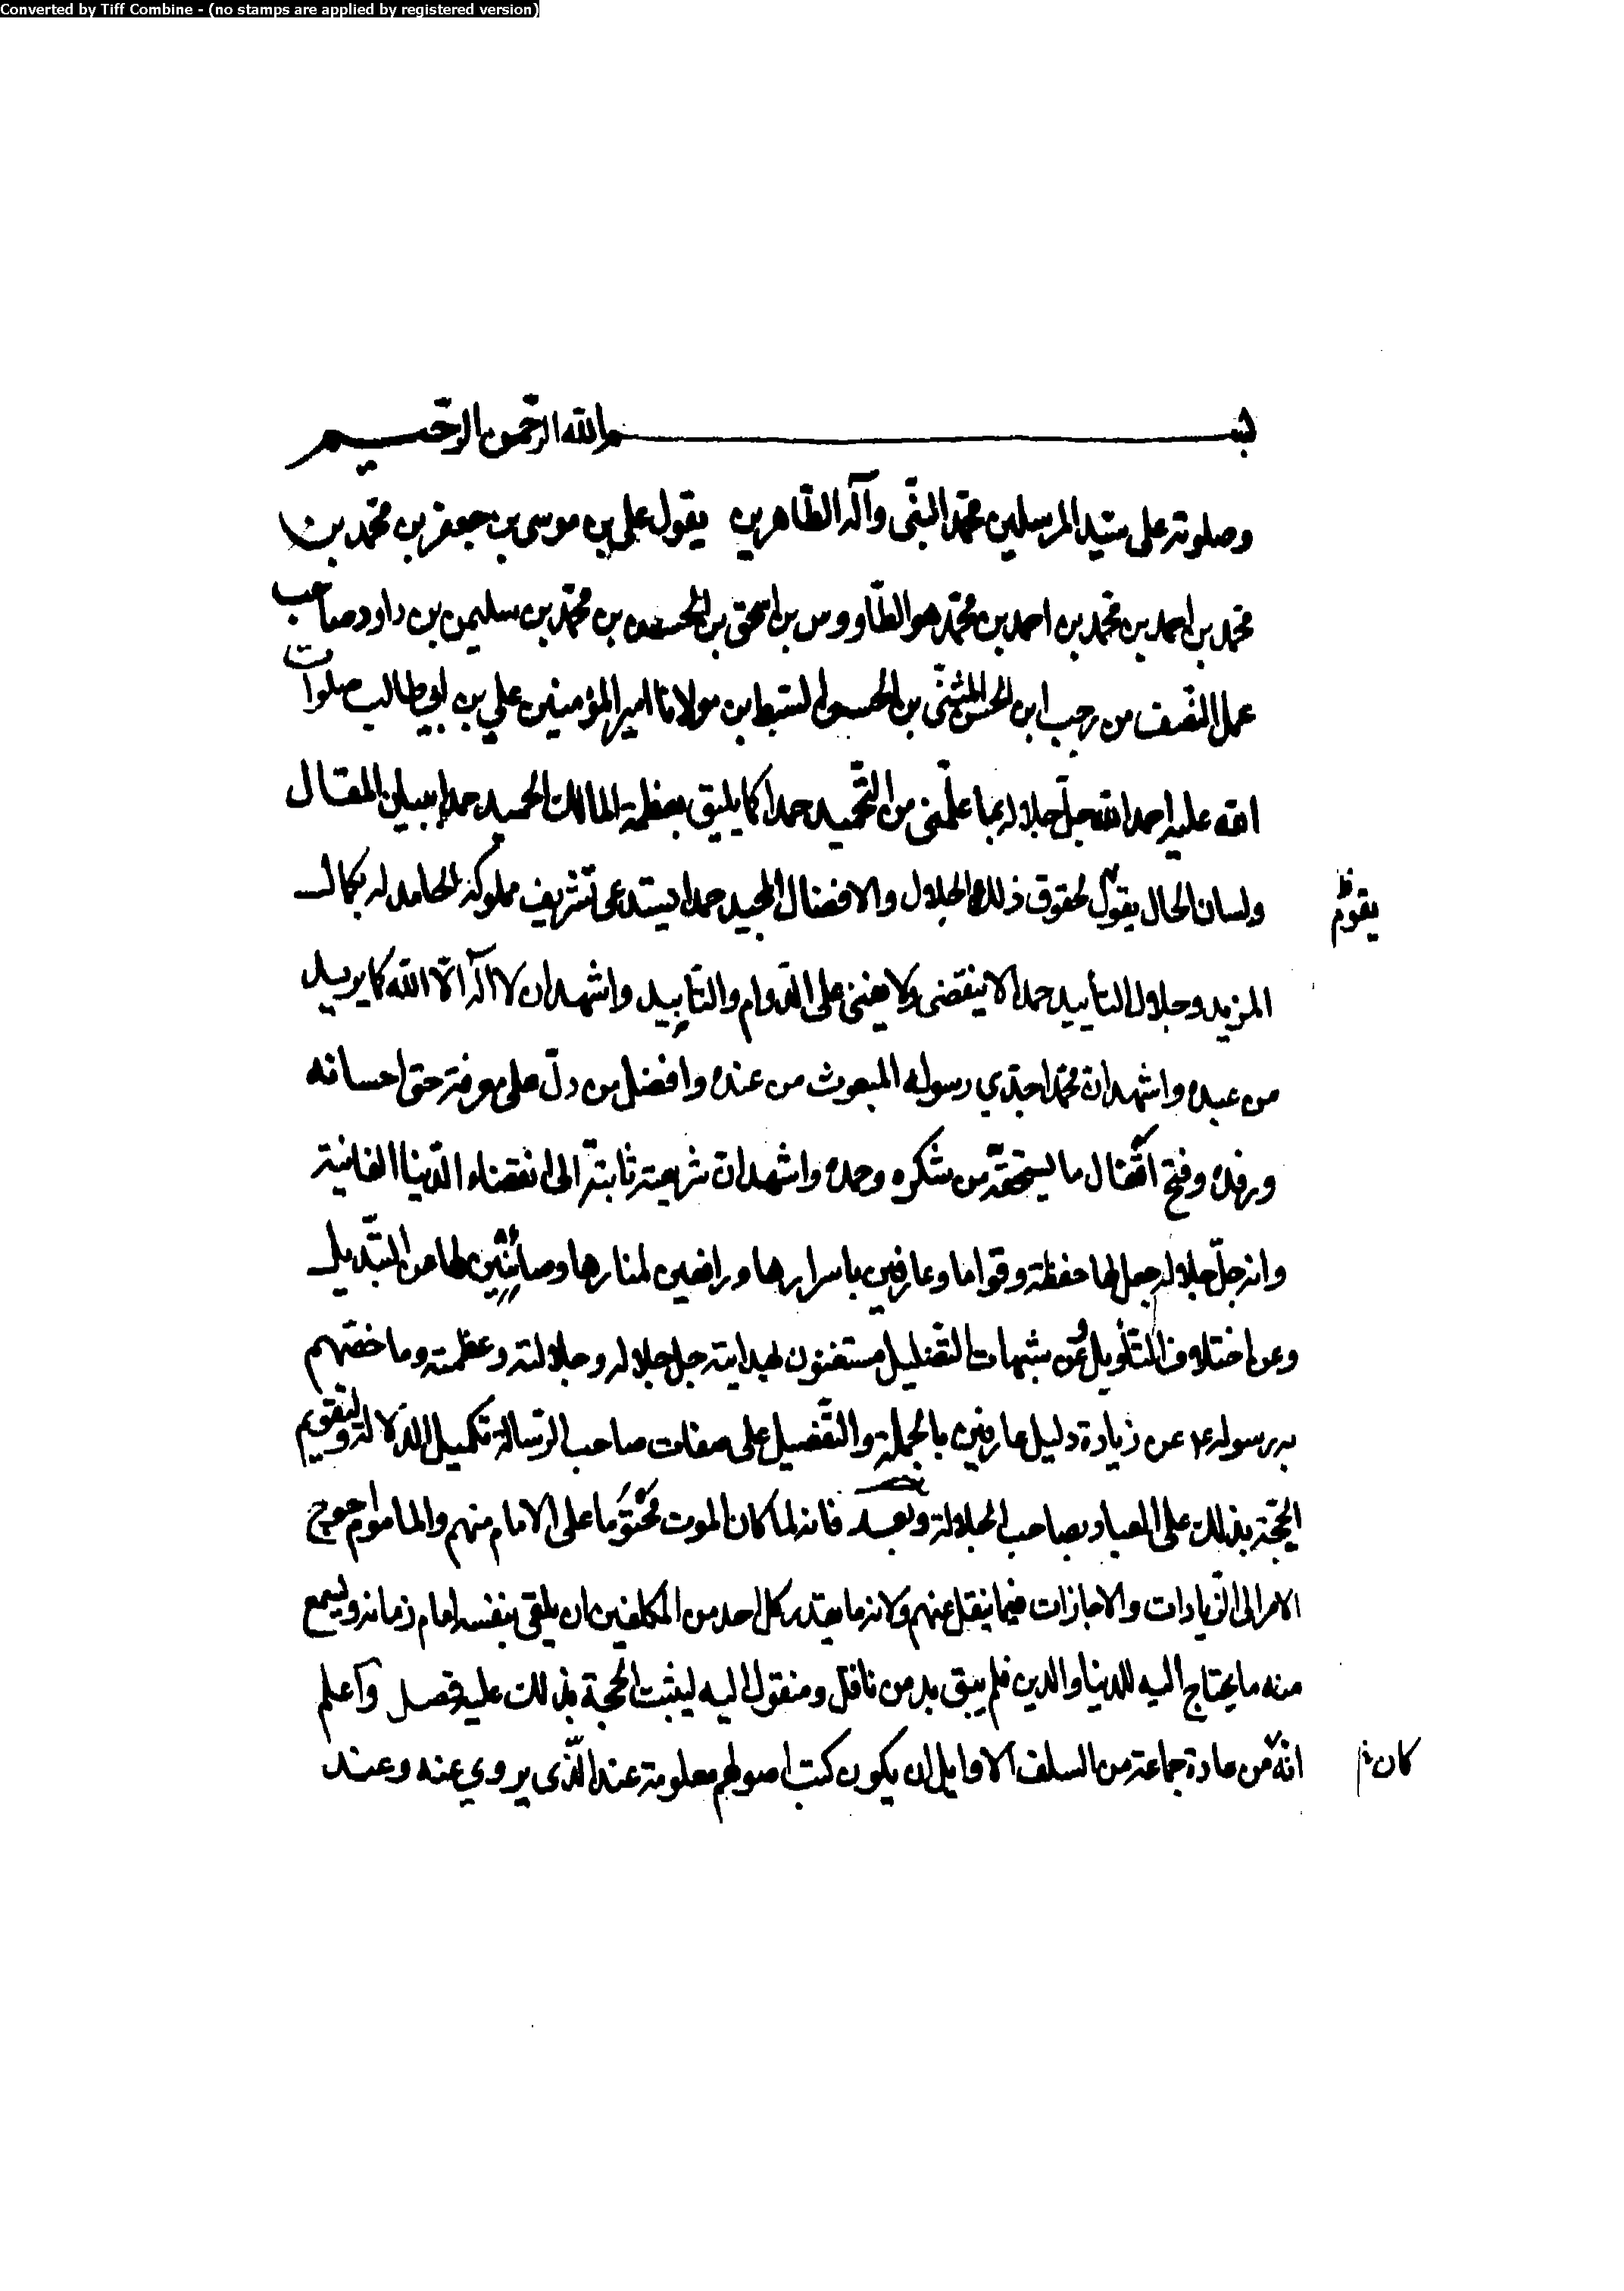 Converted by Tiff Combine - (no stamps are applied by registered version)
بسم الله الرحمن الرحيم
وصلوته على سيّد المرسلين محمّد النبّى وآله الطّاهرين يقول على بن موسى بن جعفر بن محمّد بن
محمّد بن احمد بن محمّد بن احمد بن محمّد هو الطّاووس بن اسحق بن الحسن بن محمّد بن سليمن بن داود صاحب
عمل النّصف من رجب ابن الحسن المثنّى بن الحسن السّبط ابن مولانا امير المؤمنين علي بن ابي طالب صلوات
الله عليه احمد الله جلّ جلاله بما علّمنى من التّحميد حمدا كما يليق بعظمة المالك الحميد حمدا بلسان المقال
ولسان الحال يقول لحقوق ذلك الجلال والافضال المجيد حمدا يستدعى تشريف مملوكه الحامد له بكمال
يقوم ظ
المزيد وجلال التاييد حمدا لا ينقضى ولا يفنى على الدّوام والتّابيد واشهد ان لا اله الّا الله كما يريد
من عبده واشهد ان محمّدا جدّي رسوله المبعوث من عنده وافضل من دلّ على معرفة حق احسانه
ورفده وفتح اقفال ما يستحقّه من شكره وحمده واشهد ان شريعته ثابتة الى انقضاء الدّنيا الفانية
وانه جلّ جلاله جعل لها حفظة وقواما وعارفين باسرارها ورافعين لمنارها وصائنين لها من التبّديل
وعن اختلاف التّأويل وعن شبهات التّضليل مستغنون بهدايته جل جلاله وجلالته وعظمته وما خصّهم
به برسوله ع عن زيادة دليل عارفين بالجملة والتّفصيل على صفات صاحب الرّسالة تكميل الدّلالة ولتقويم
الحجّة بذلك على العباد بصاحب الجلالة وبعد فانه لما كان الموت محتوما على الامام منهم والماموم احوج
الامر الى الرّيادات والاجازات فيما ينقل عنهم ولانه ما يقدر كل احد من المكلفين ان يلقى بنفسه امام زمانه ويسمع
منه ما يحتاج اليه للدنيا والدين فلم يبق بد من ناقل ومنقول اليه ليثبت الحجة بذلك عليه فصل واعلم
انّه من عادة جماعة من السلف الاوايل ان يكون كتب اصولهم معلومة عند الّذى يروي عنه وعند
كان